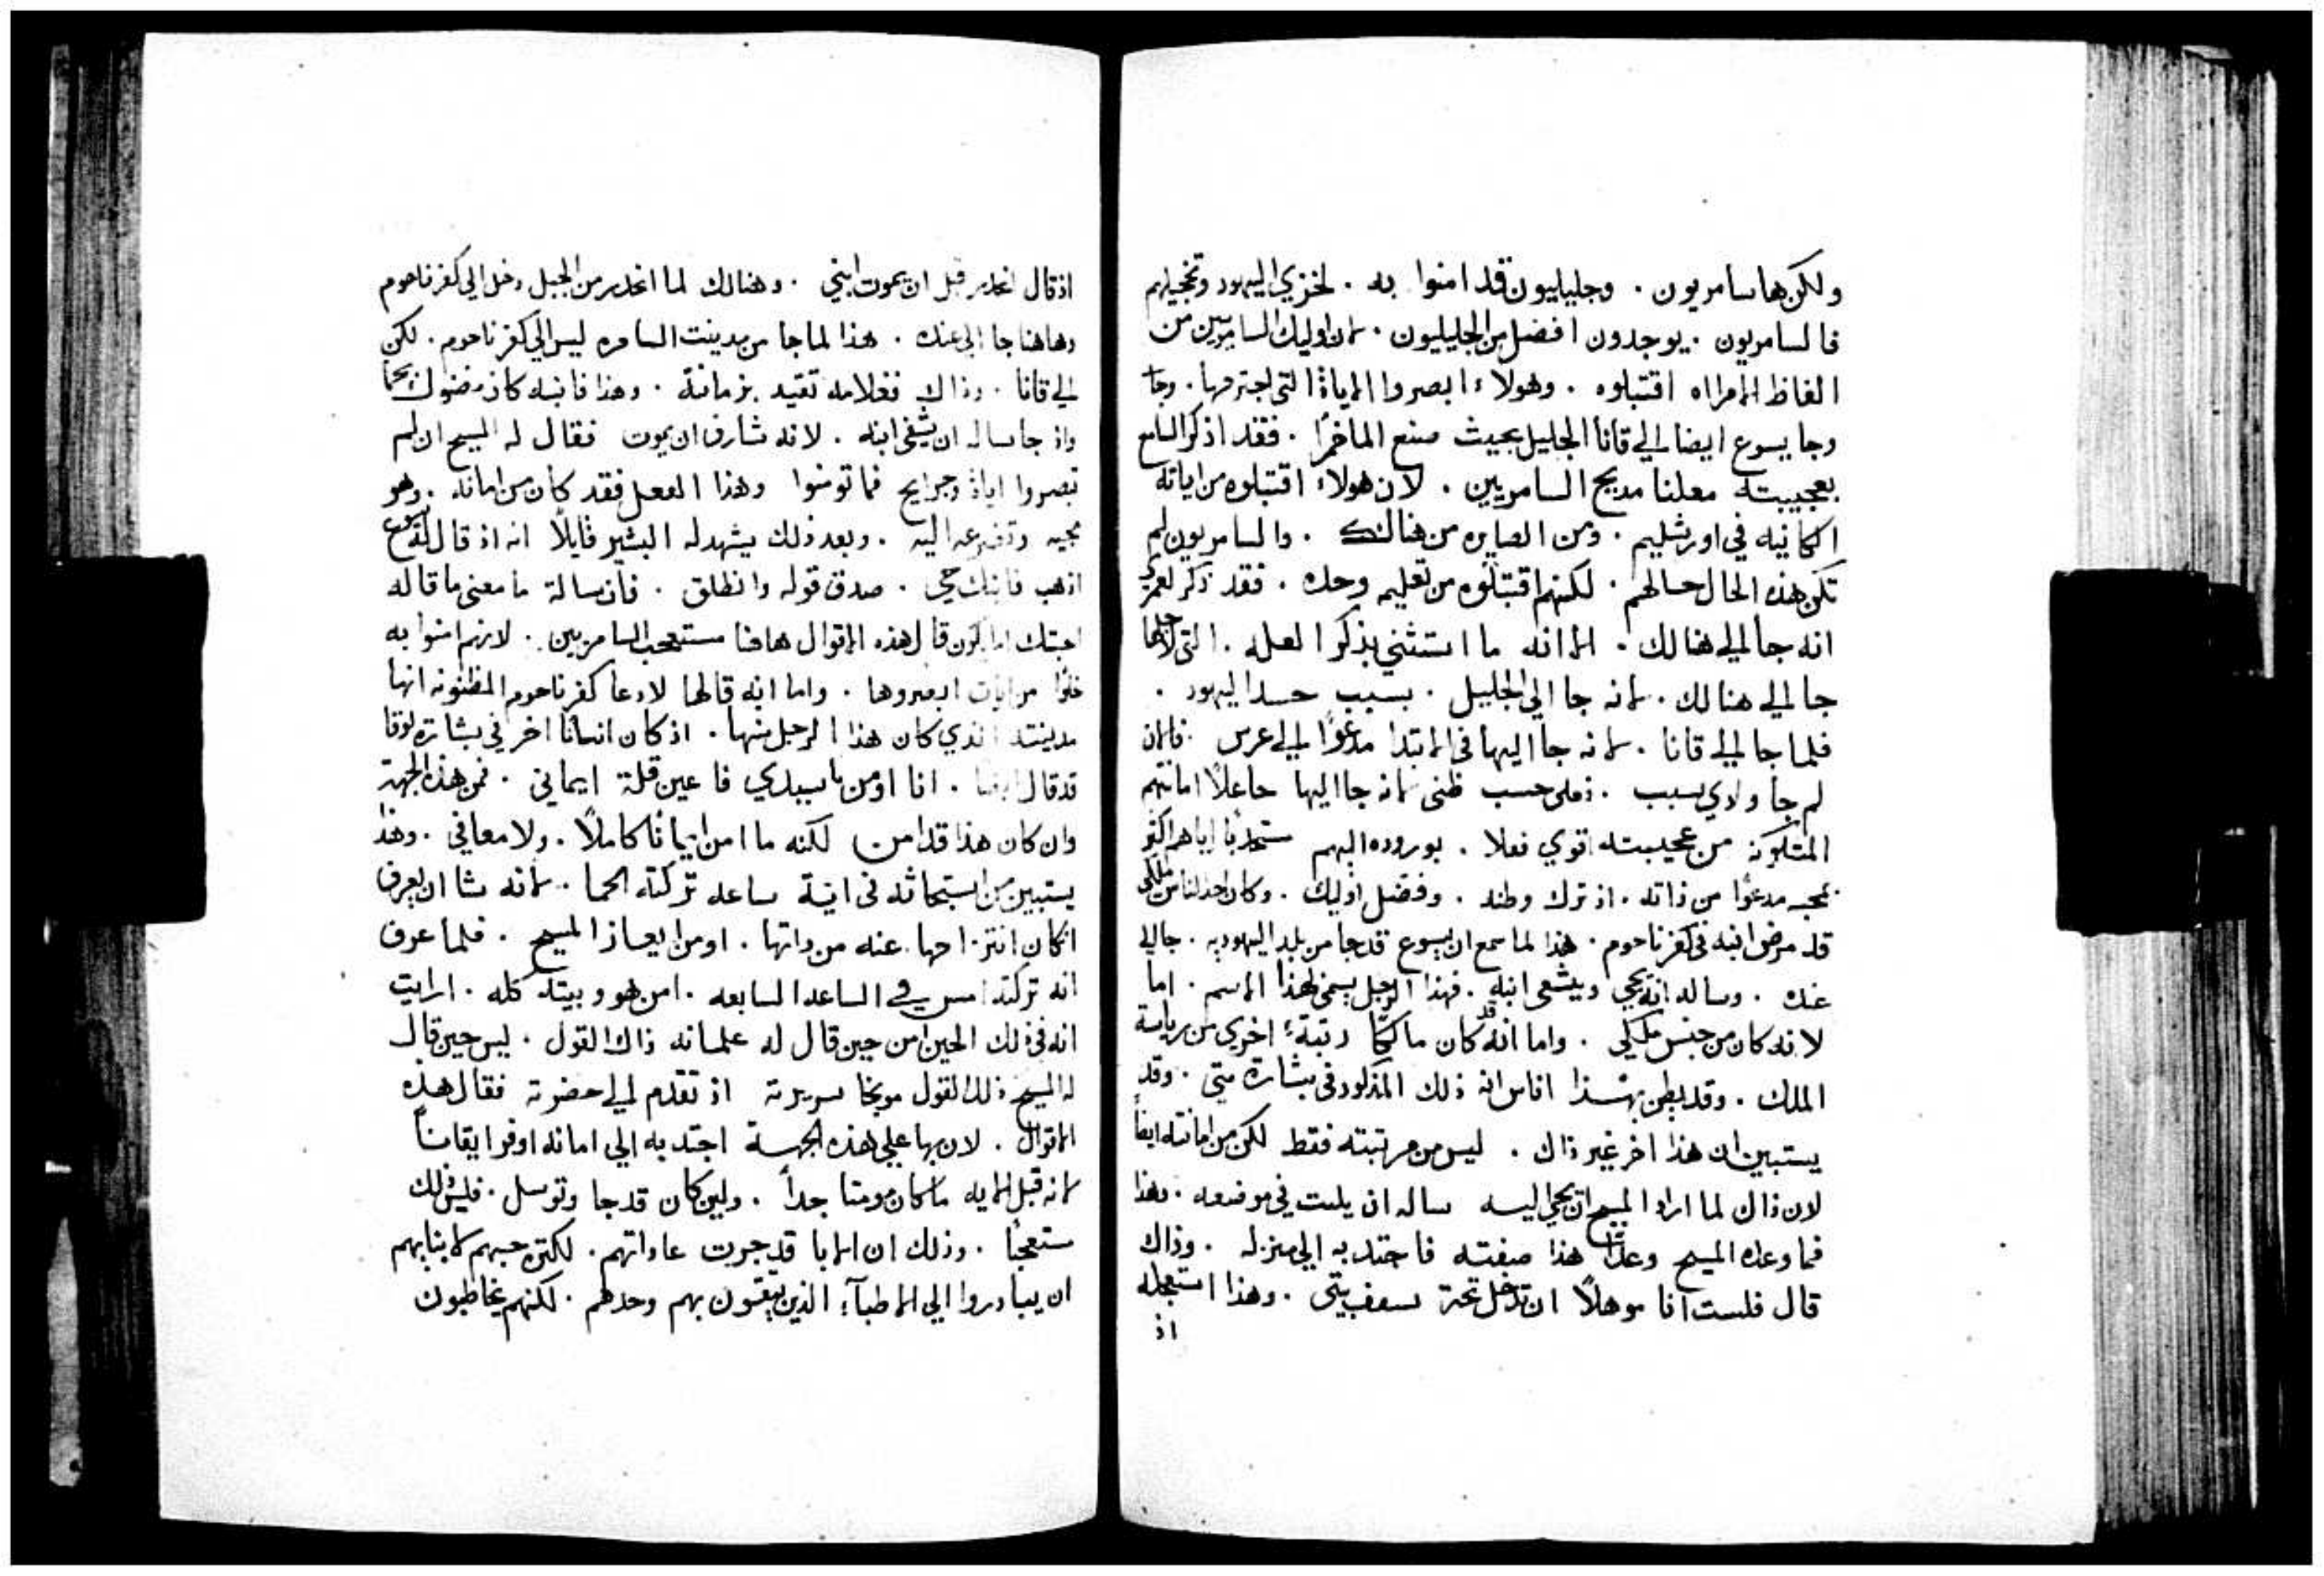 ولكن هاسامريون . وجليليون قد امنوا به . لخزي اليهود وتخجيلهم
فالسامريون . يوجدون افضل من الجليليون . لان اوليك السامريين من
الفاظ الامراه اقتبلوه . وهولاء ابصروا الاياة التي اجترمها . وجا
وجا يسوع ايضا الي قانا الجليل بحيث صنع الماخمرًا . فقد اذكر السامع
بعجيبته معلنا مديح السامريين . لان هولاء اقتبلوه من اياته
الكانيه في اورشليم . ومن الصايره من هنالك . والسامريون لم
تكن هذه الحال حالهم . لكنهم اقتبلوه من تعليمه وحده . فقد ذكر لعمري
انه جا الي هنالك . الا انه ما استثني بذكر العله . التي لاجلها
جا الي هنالك . لانه جا الي الجليل . بسبب حسد اليهود .
فلما جا الي قانا . لانه جا اليها في الابتدا مدعوًا الي عرس . فالان
لم جا ولاي سبب . فعلى حسب ظني لانه جا اليها جاعلًا امانتهم
المتكونه من عجيبته اقوي فعلا . بوروده اليهم مستجدبًا اياهم اكثر
بمجيه مدعوًا من ذاته . اذ ترك وطنه . وفضل اوليك . وكان احد الناس ملكي
قد مرض ابنه في كفرناحوم . هذا لما سمع ان يسوع قد جا من بلد اليهوديه . جا الي
عنده . وساله انه يجي ويشفي ابنه . فهذا الرجل يسمي لهذا الاسم . اما
لانه كان من جنس ملكي . واما انه قد كان مالكًا رتبةً اخري من رياسة
الملك . وقد يظن بهذا اناس انه ذلك المذكور في بشارة متي . وقد
يستبين ان هذا اخر غير ذاك . ليس من مرتبته فقط لكن من امانته ايضًا
لان ذاك لما اراد المسيح ان يجي اليه ساله ان يلبث في موضعه . وهذا
فما وعده المسيح وعدًا هذا صفته فاجتدبه الي منزله . وذاك
قال فلست انا موهلًا ان تدخل تحت سقف بيتي . وهذا استعجله
اذ
اذ قال انحدر قبل ان يموت ابني . وهنالك لما انحدر من الجبل دخل الي كفرناحوم
وهاهنا جا الي عنده . هذا لما جا من مدينت السامره ليس الي كفرناحوم . لكن
الي قانا . وذاك فغلامه تقيد بزمانة . وهذا فابنه كان منهوك بحما
واذ جا ساله ان يشفي ابنه . لانه شارف ان يموت فقال له المسيح ان لم
تبصروا اياة وجرايح فما تومنوا وهذا الفعل فقد كان من امانه . وهو
مجيه وتضرعه اليه . وبعد ذلك يشهد له البشير قايلًا انه اذ قال له يسوع
اذهب فابنك حي . صدق قوله وانطلق . فان سالة ما معنى ما قاله
اجبتك قال هذه الاقوال هاهنا مستعجب السامريين . لانهم امنوا به
خلوًا من ايات ابصروها . واما انه قالها لادعا كفرناحوم المظنونه انها
مدينته الذي كان هذا الرجل منها . اذ كان انسانًا اخر في بشارة لوقا
قد قال ايضا . انا اومن ياسيدي فاعين قلة ايماني . فمن هذه الجهة
وان كان هذا قد امن لكنه ما امن ايمانًا كاملًا . ولا معافي . وهذا
يستبين من استبحاثه في اية ساعه تركته الحما . لانه شا ان يعرف
ان كان انتزاحها عنه من داتها . او من ايعاز المسيح . فلما عرف
انه تركته امس في الساعه السابعه . امن هو وبيته كله . ارايت
انه في ذلك الحين امن حين قال له غلمانه ذاك القول . ليس حين قال
له المسيح ذلك القول موبخا سريرته اذ تقدم الي حضرته فقال هذه
الاقوال . لان بها علي هذه الجهة اجتدبه الي امانه اوفر ايقانًا
لانه قبل الايه ما كان مومنا جدًا . ولين كان قد جا وتوسل . فليس ذلك
مستعجبًا . وذلك ان الابا قد جرت عاداتهم . لكثرة حبهم لابنايهم
ان يبادروا الي الاطبآء الذين يثقون بهم وحدهم . لكنهم يخاطبون